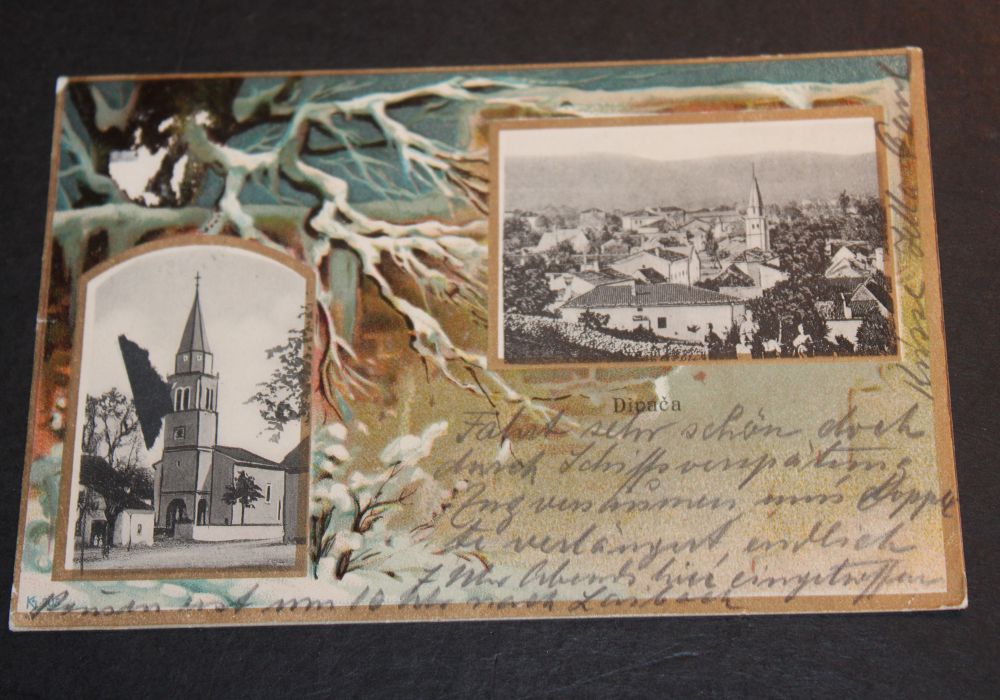 Dipača
Fahrt sehr schön doch
durch Schiffsverspätung
Zug versäumen, muss
verlängert, endlich
7 Uhr Abends hier eingetroffen
erst um 10 Uhr nach Laibach
Küsse